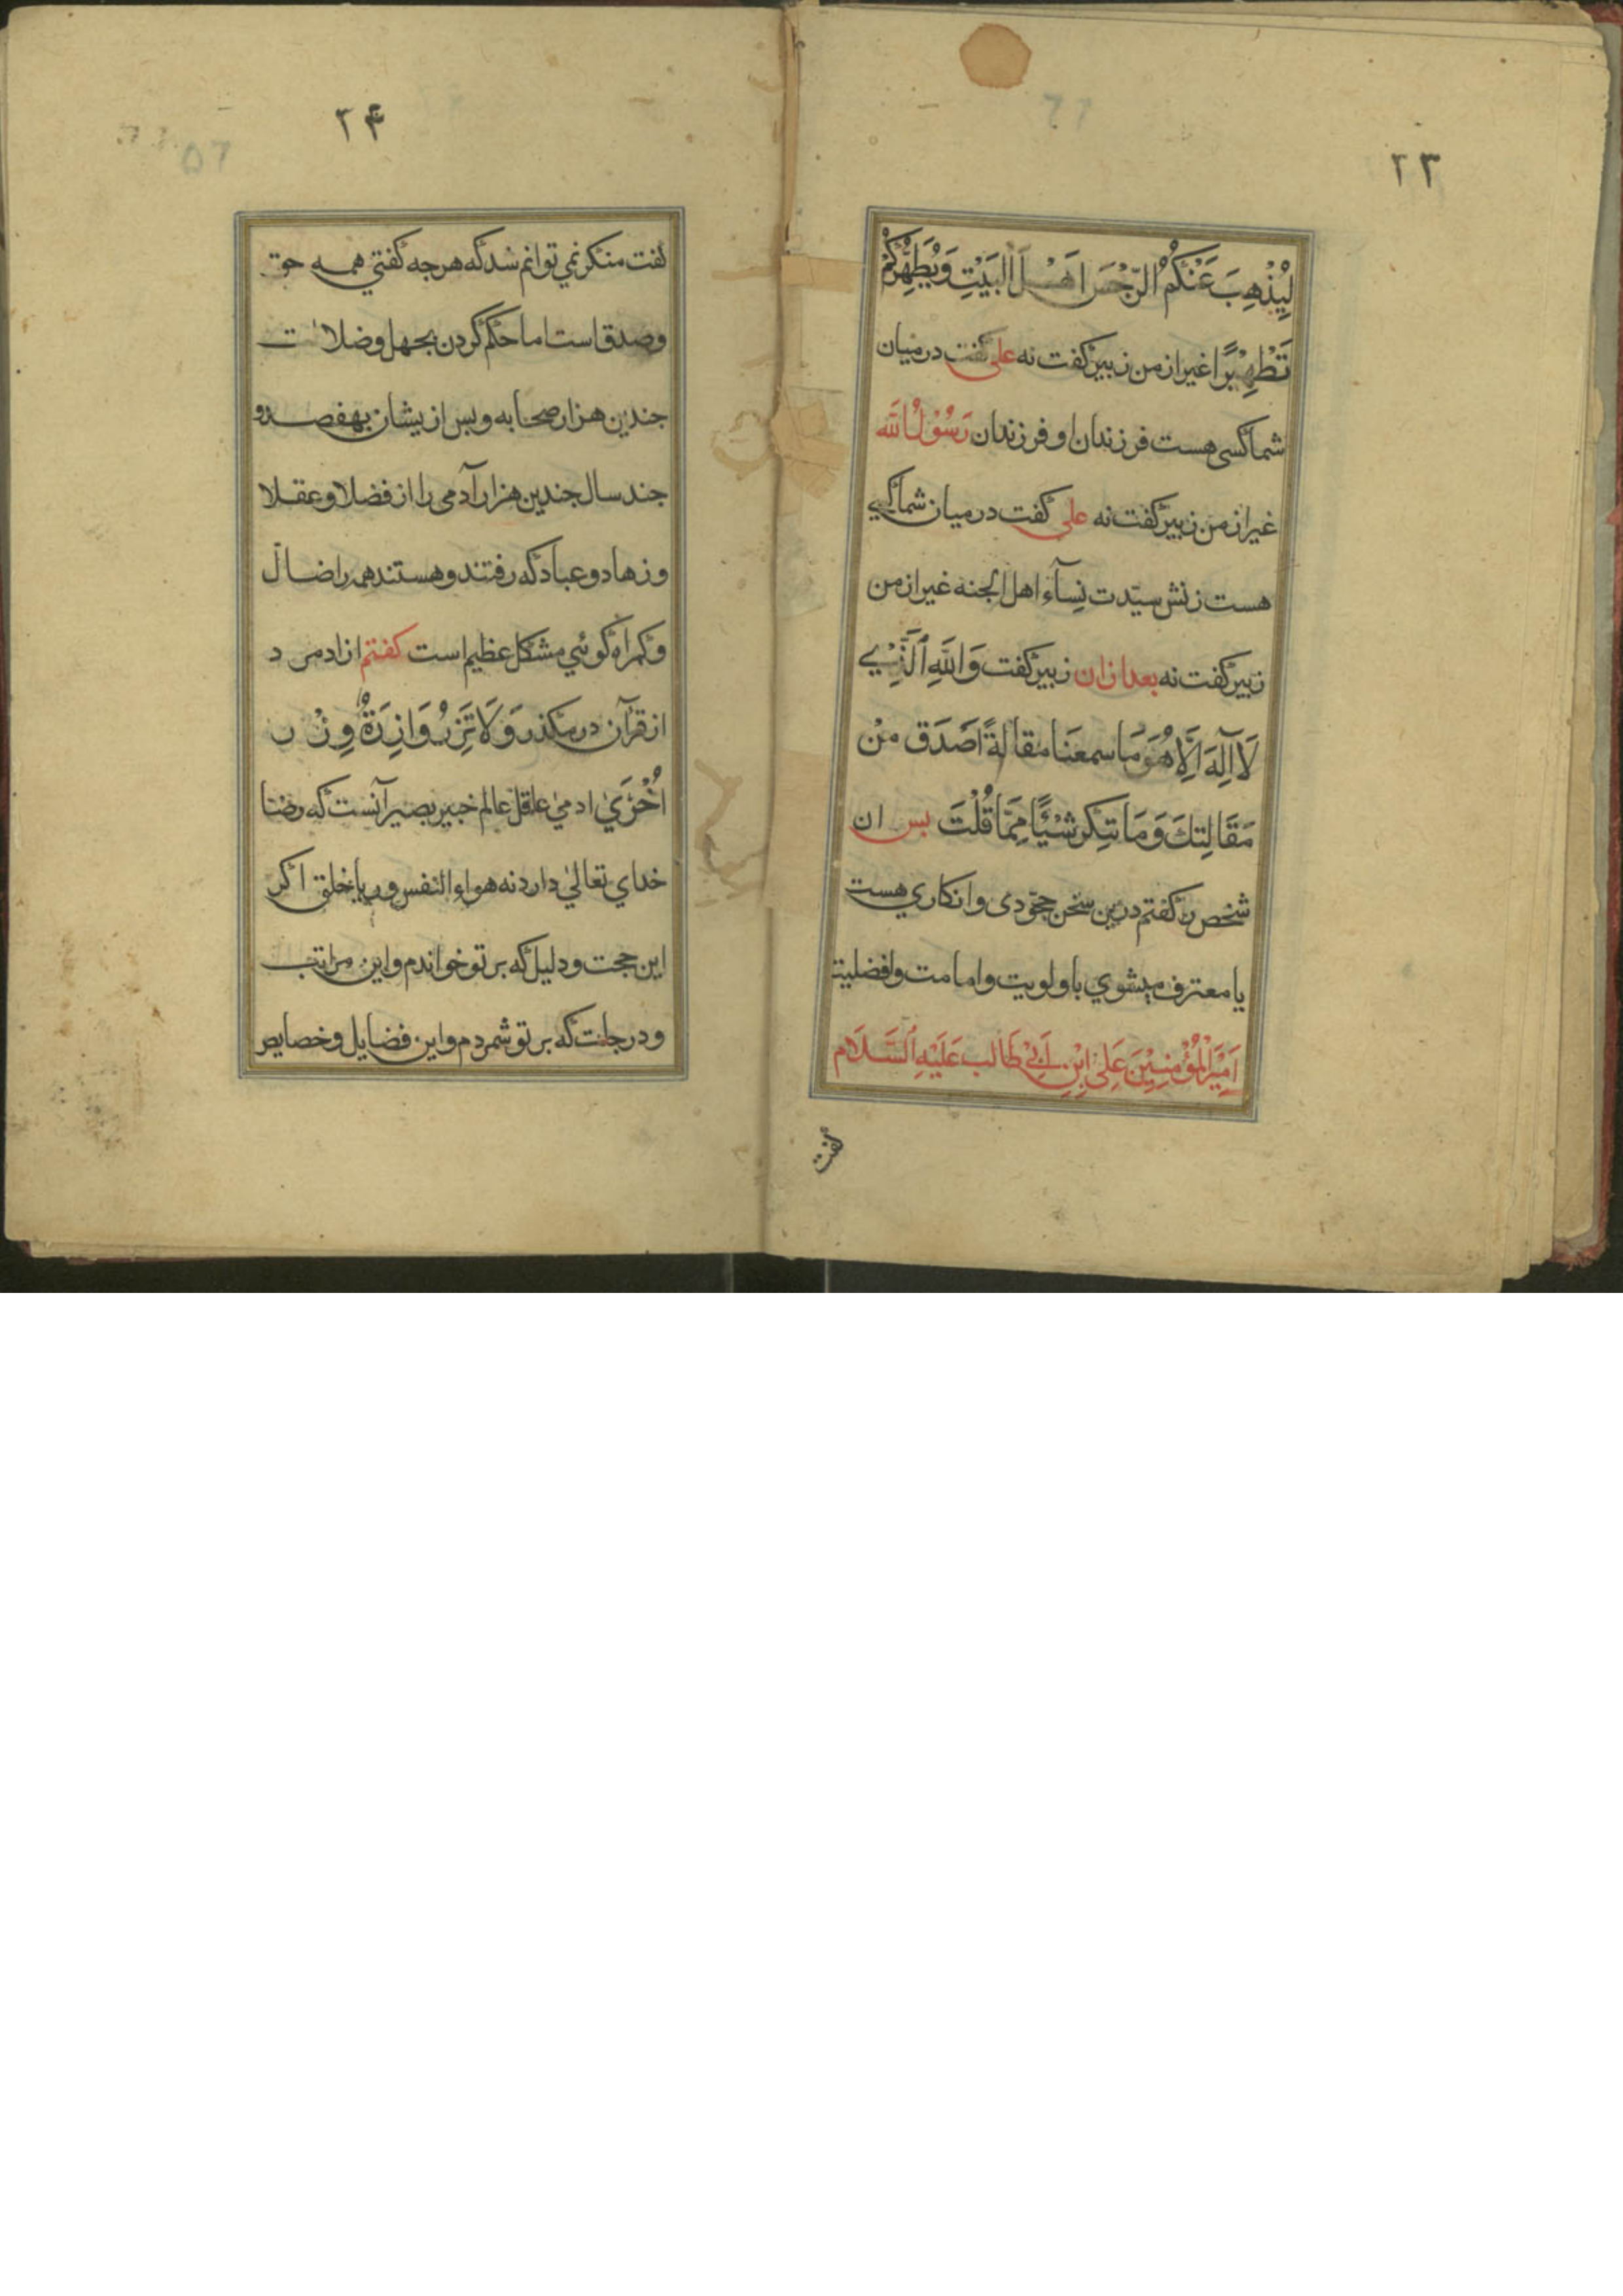 ۲۳
لِيُذْهِبَ عَنْكُمُ الرِّجْسَ اَهْلَ الْبَيْتِ وَيُطَهِّرَكُمْ
تَطْهِيْرًا غیراز من زبیر کفت نه علی کفت درمیان
شما کسی هست فرزندان او فرزندان رَسُوْلُ الله
غیراز من زبیر کفت نه علی کفت درمیان شما کسي
هست زنش سیّدت نِسآء اهل الجنه غیراز من
زبیر کفت نه بعد ازان زبیر کفت وَاللهِ اَلَّذِيْ
لَا آلِهَ اِلَّا هُوَ مَا سمعنَا مقالةً اَصَدَق مِنْ
مَقَالِتكَ وَمَا نتِكر شَيْئًا مِمَّا قُلْتَ بس ان
شخص را کفتم درین سخن جحودی وانکاري هست
یا معترف میشوي باولویت وامامت وافضلیت
اَمِيْرَ الْمُؤْمِنِيْنَ عَلِيْ اِبْنِ اَبِيْ طَالب عَلَيْهِ اَلسَّلَام
کفت
۲۴
کفت منکر نمي توانم شد که هرجه کفتي همه حق
وصدق است اما حکم کردن بجهل وضلالت
جندین هزار صحابه وبس ازیشان بهفصد و
جند سال جندین هزار آدمی را از فضلا وعقلا
وزهاد وعباد که رفتند وهستند همه را ضالّ
وکمراه کوئي مشکل عظیم است کفتم ازاد مرد
از قرآن درمکذر وَلَا تَزِرُ وَازِرَةٌ وِزْر
اُخْرَيٰ ادمی عاقل عالم خبیر بصیر آنست که رضا
خداي تعالیٰ دارد نه هواء النفس وریا خلق اکر
این حجت ودلیل که بر تو خواندم واین مراتب
ودرجات که بر تو شمردم واین فضایل وخصایص